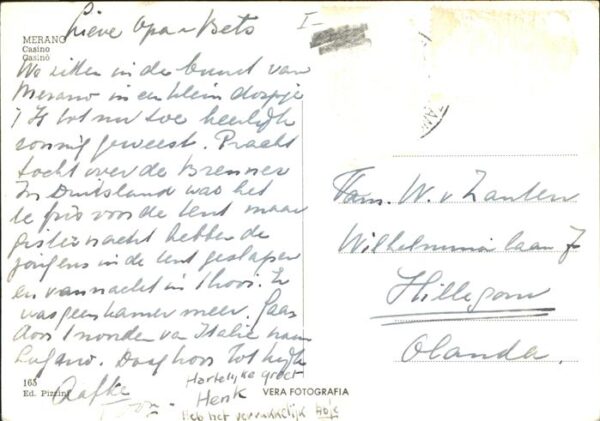 Lieve Opa + Bets
MERANO
Casino
Casinò
We zitten in de buurt van
Merano in een klein dorpje
't Is tot nu toe heerlijk
zonnig geweest. Pracht
tocht over de Brenner
In Duitsland was het
te fris voor de tent maar
gisternacht hebben de
jongens in de tent geslapen
en vannacht in 1 hooi. Er
was geen kamer meer. Gaan
door 't noorden van Italie naar
Lugano. Dag hoor tot kijk
Aafke
Hartelijke groet
Henk
Heb het verrukkelijk
165
Ed. Pizzini
VERA FOTOGRAFIA
I-
Fam. W. v Zanten
Wilhelminalaan 7
Hillegom
Olanda.